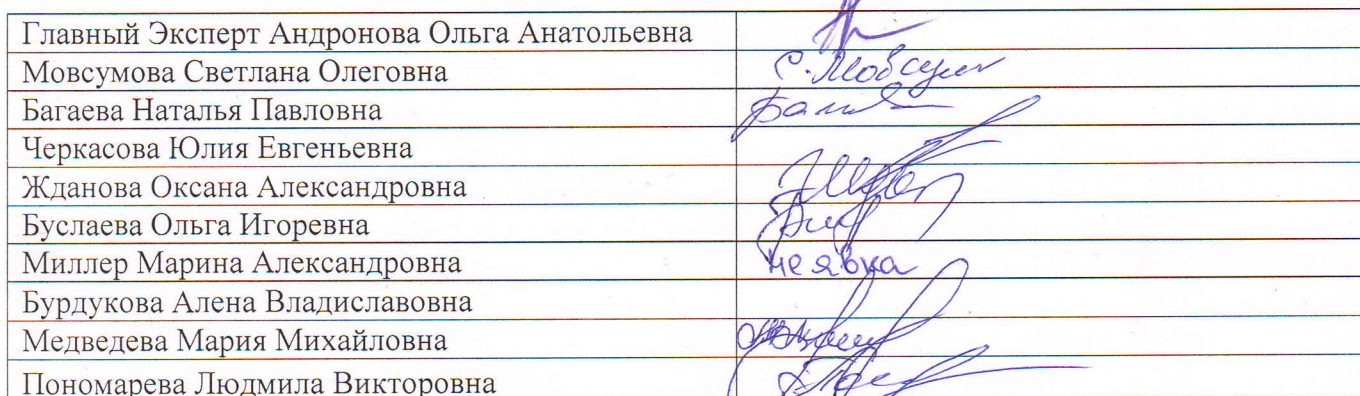 Главный Эксперт Андронова Ольга Анатольевна
Мовсумова Светлана Олеговна С. Мовсум
Багаева Наталья Павловна
Черкасова Юлия Евгеньевна
Жданова Оксана Александровна
Буслаева Ольга Игоревна
Миллер Марина Александровна неявка
Бурдукова Алена Владиславовна
Медведева Мария Михайловна
Пономарева Людмила Викторовна